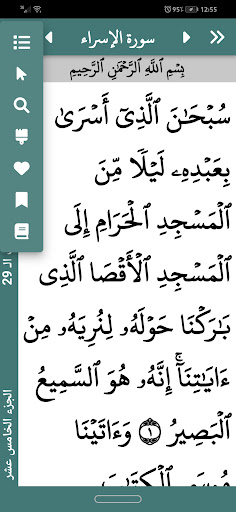 95% 12:55
سورة الإسراء
بِسْمِ اللَّهِ الرَّحْمَٰنِ الرَّحِيمِ
سُبْحَٰنَ ٱلَّذِىٓ أَسْرَىٰ
بِعَبْدِهِۦ لَيْلًا مِّنَ
ٱلْمَسْجِدِ ٱلْحَرَامِ إِلَى
ٱلْمَسْجِدِ ٱلْأَقْصَا ٱلَّذِى
بَٰرَكْنَا حَوْلَهُۥ لِنُرِيَهُۥ مِنْ
ءَايَٰتِنَآ ۚ إِنَّهُۥ هُوَ ٱلسَّمِيعُ
ٱلْبَصِيرُ ١ وَءَاتَيْنَا
مُوسَى ٱلْكِتَٰبَ
29
الجزء الخامس عشر